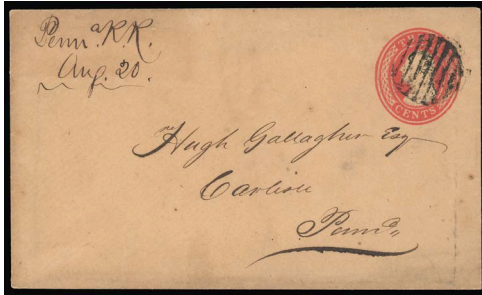 Penn.ª R.R.
Aug. 20.
THREE
CENTS
Hugh Gallagher Esq
Carlisle
Pennª